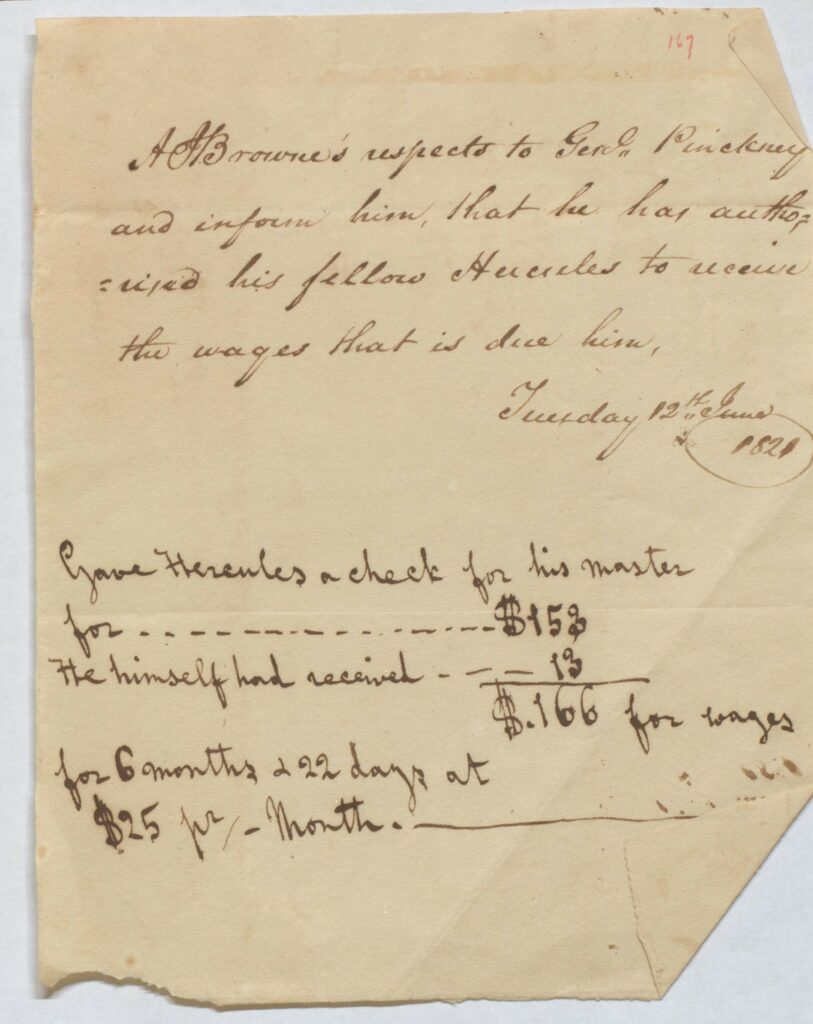 167
A H Browne's respects to Genl,, Pinckney
and inform him, that he has autho,=
=rised his fellow Hercules to receive
the wages that is due him,
Tuesday 12th,, June
1821
Gave Hercules a check for his master
for - - - - - - - - - - - - - - $153
He himself had received - - - 13
$.166 for wages
for 6 months & 22 days at
$25 pr/- Month.